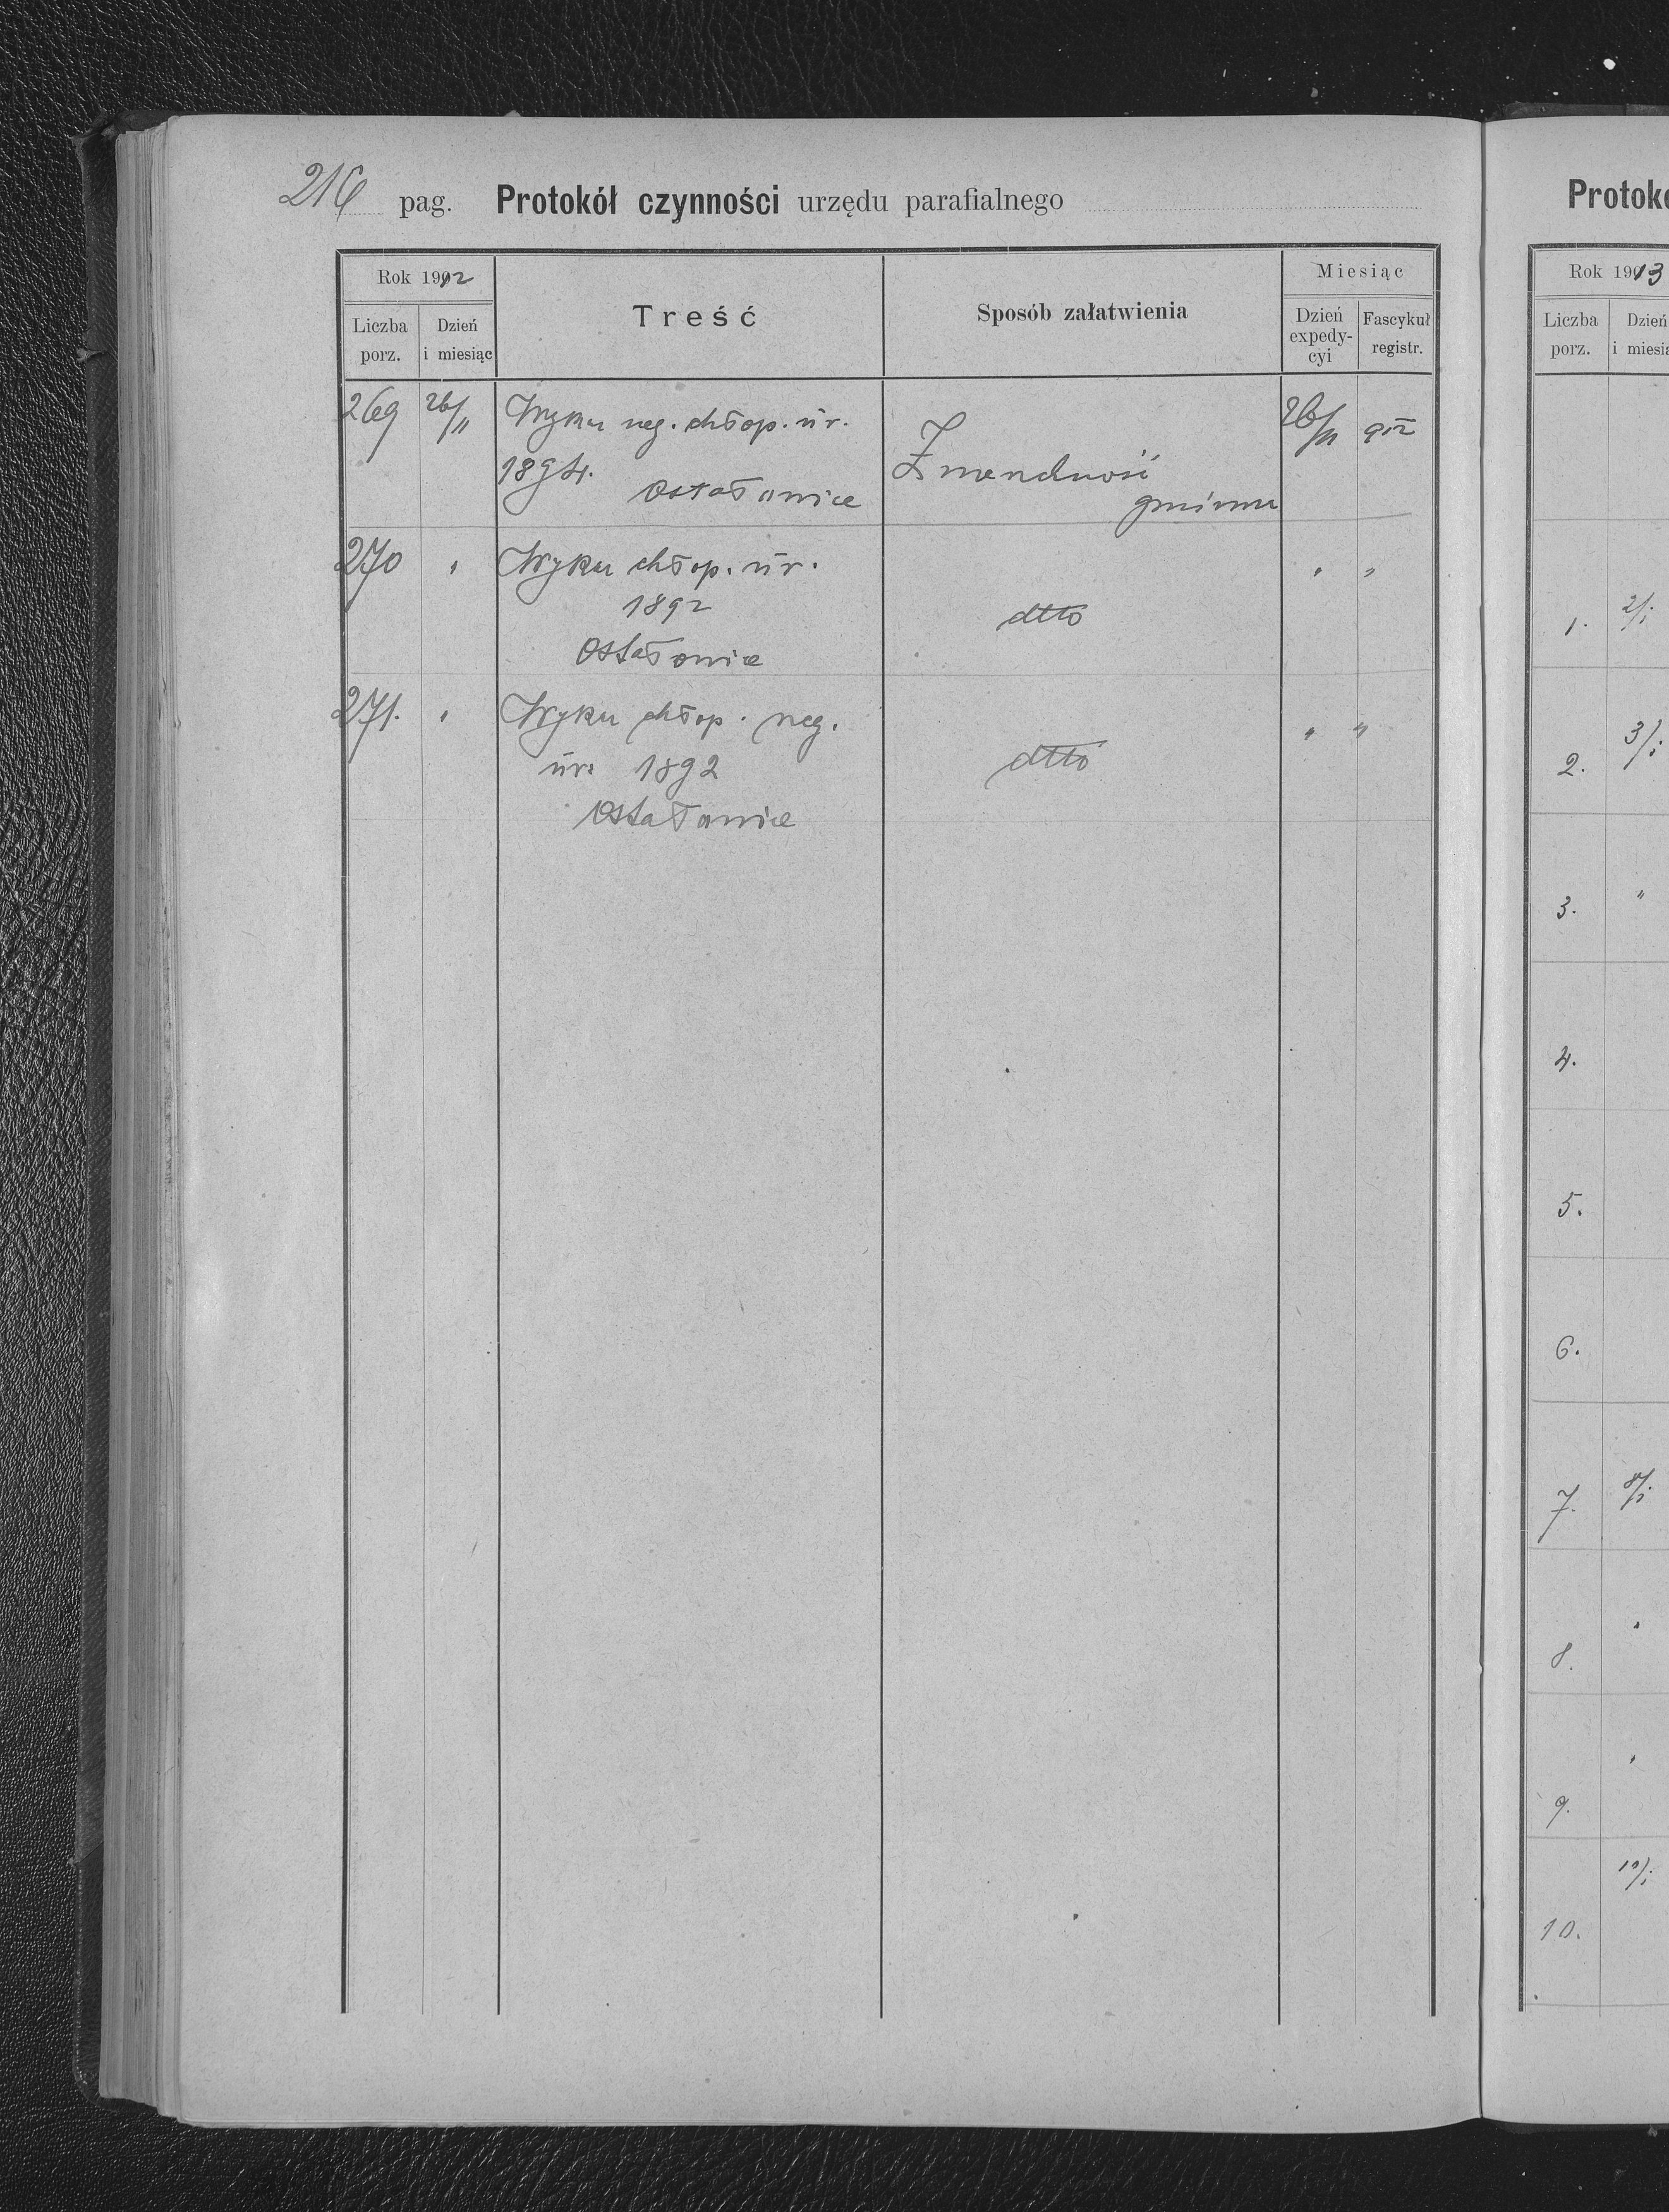 216 pag. Protokół czynności urzędu parafialnego
Rok 1912
Treść
Sposób załatwienia
Miesiąc
Liczba porz.
Dzień i miesiąc
Dzień expedy-cyi
Fascykuł registr.
269 26/11 Wykaz neg. chłop. ur.
1894.
Ostałowice
Zwierzchność
gminna
26/11
270 " Wykaz chłop. ur. " "
1892
dtto
Ostałowice
271. " Wykaz chłop. neg. " "
ur. 1892
dtto
Ostałowice
Protok
Rok 1913
Liczba porz.
Dzień i miesią
1. 2/i
2. 3/i
3. "
4.
5.
6.
7. 8/i
8. "
9. "
10.